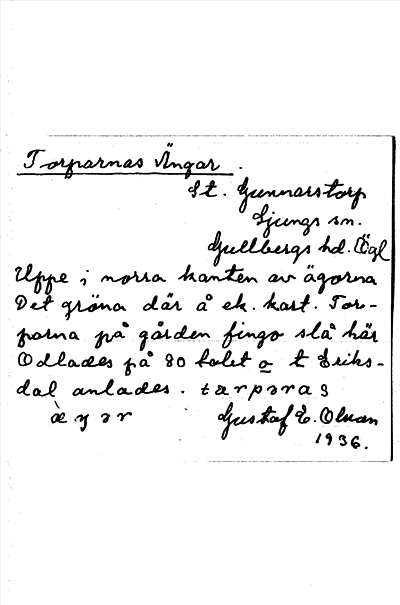 Torparnas Ängar.
St. Gunnarstorp
Ljungs sn.
Gullbergs hd. Ögl
Uppe i norra kanten av ägorna
Det gröna där å ek. kart. Tor-
parna på gården fingo slå här
Odlades på 80 talet o t Eriks-
dal anlades. tærpəras
æŋər Gustaf E. Olsson
1936.